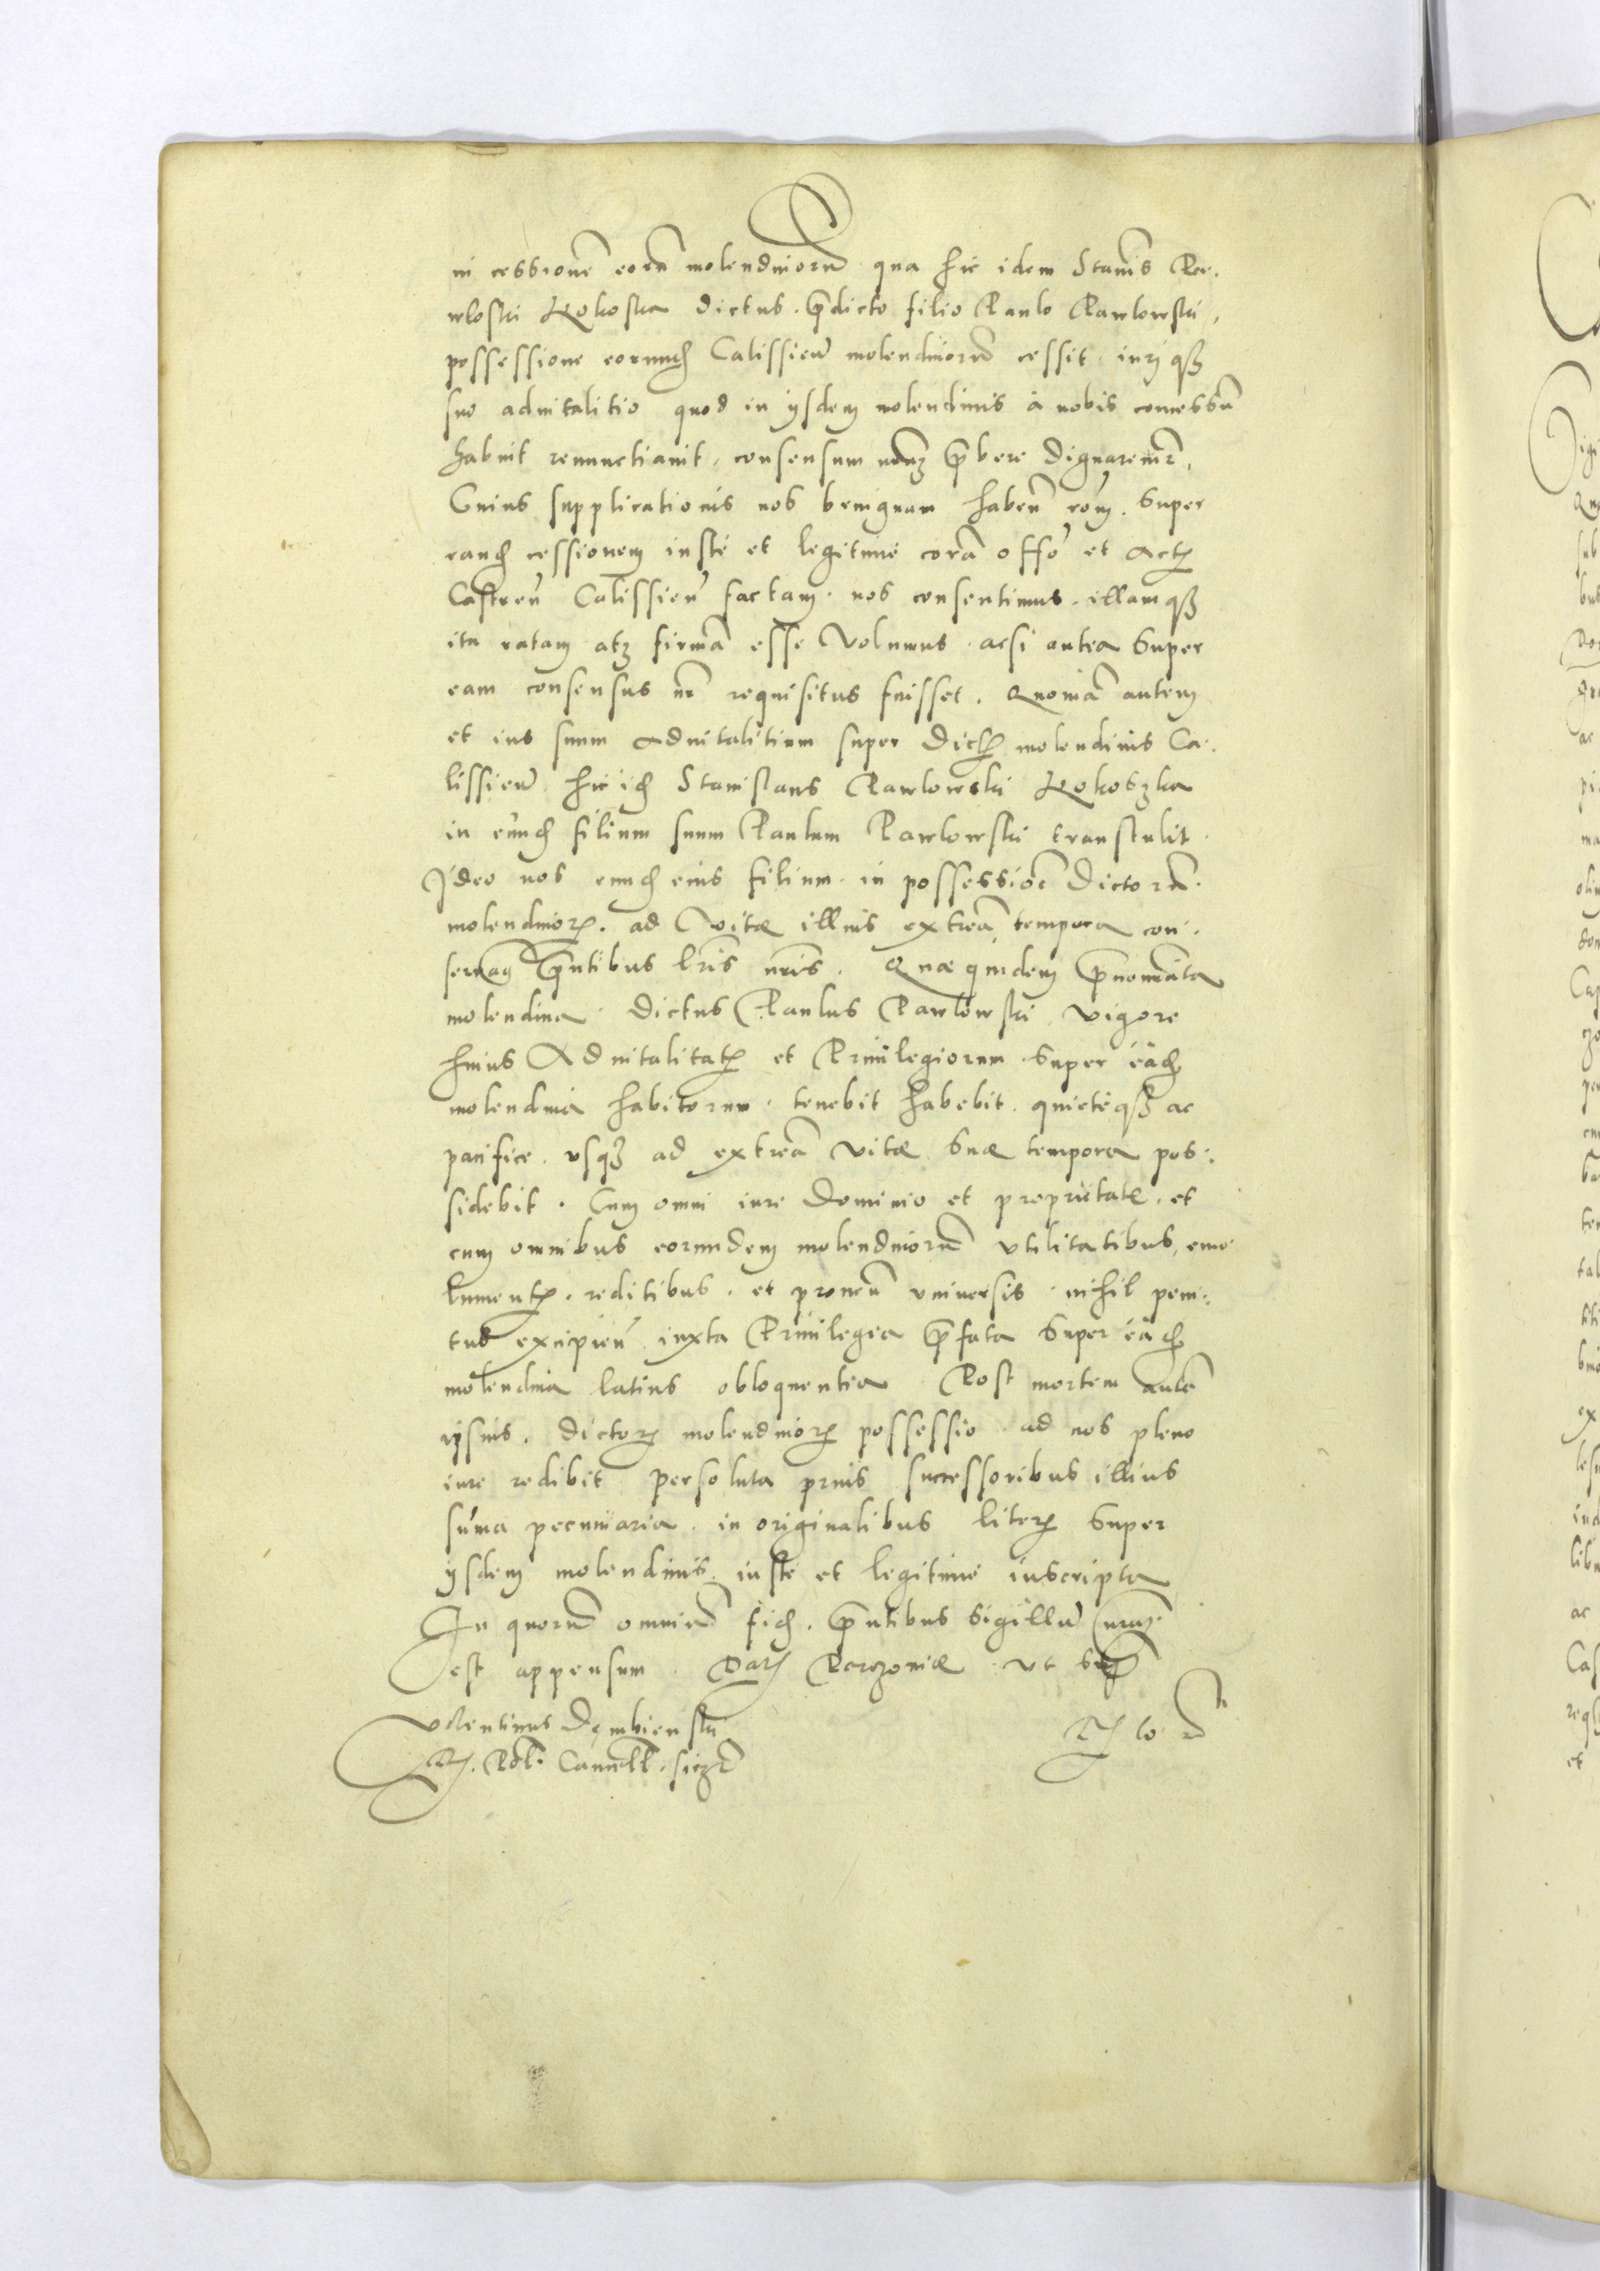 in cessionē eorū molendinorū qua hic idem Stanis Pa-
wloski Kokoska dictus. p̄dicto filio Paulo Pawlowski,
possessione eorundē Calissieñ molendinorū cessit. iuriqȝ
suo advitalitio quod in ijsdem molendinis à nobis concessū
habuit renunctiavit, consensum nr̄m p̄bere dignaremr̄,
Cuius supplicationis nos benignam habeñ rōnem. Super
eandē cessionem iustè et legitimè corā offō et Actis
Castreñ Calissieñ factam. nos consentimus. illamqȝ
ita ratam atqȝ firmā esse volumus. acsi antea super
eam consensus nr̄ requisitus fuisset. Quoniā autem
et ius suum advitalitium super dictis molendinis Ca-
lissieñ hic idē Stanislaus Pawlowski Kokoszka
in eundē filium suum Paulum Pawlowski transtulit.
Ideo nos eundē eius filium in possessiōe dictorū.
molendinorȝ. ad vitæ illius extrēa tempora con-
servamꝰ p̄ntibus lr̄is nr̄is. Quæ quidem p̄nominata
molendina dictus Paulus Pawlowski vigore
huius Advitalitatis et Privilegiorum super eadē
molendina habitorum. tenebit habebit. quieteqȝ ac
pacifice. vsqȝ ad extrēa vitæ suæ tempora pos-
sidebit. Cum omni iure dominio et proprietate. et
cum omnibus eorundem molendinorū vtilitatibus, emo-
lumentis. reditibus. et proveñ vniversis. nihil peni-
tus excipieñ. iuxta Privilegia p̄fata super eadē
molendina latius obloquentia Post mortem autē
ipsius. dictorȝ molendinorȝ possessio ad nos pleno
iure redibit persoluta prius successoribus illius
sum̄a pecuniaria. in originalibus literis super
ijsdem molendinis. iuste et legitime inscripta
In quorū omniū fidē. p̄ntibus sigillū nr̄m
est appensum. Datȝ Parczoviæ vt sup̄
Valentinus Dembienski
R. Pol. Cancell. sst